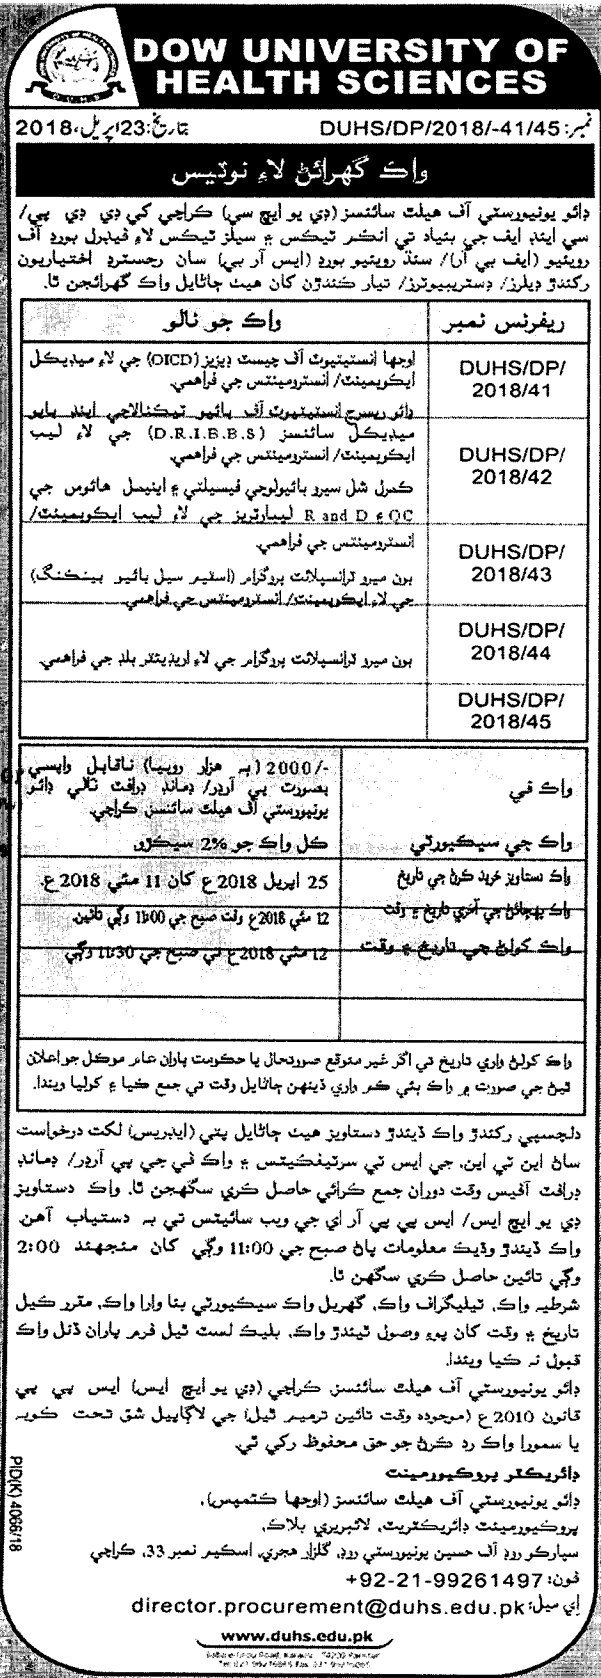 DOW UNIVERSITY OF
HEALTH SCIENCES
نمبر: DUHS/DP/2018/-41/45 بتاريخ: 23 اپريل، 2018
واڪ گهرائڻ لاءِ نوٽيس
ڊائو يونيورسٽي آف هيلٿ سائنسز (ڊي يو ايڇ سي) ڪراچي کي ڊي ڊي پي/
سي اينڊ ايف جي بنياد تي انڪم ٽيڪس ۽ سيلز ٽيڪس لاءِ فيڊرل بورڊ آف
روينيو (ايف بي آر)/ سنڌ روينيو بورڊ (ايس آر بي) سان رجسٽرڊ اختياريون
رکندڙ ڊيلرز/ ڊسٽريبيوٽرز/ تيار ڪندڙن کان هيٺ ڄاڻايل واڪ گهرائجن ٿا.
ريفرنس نمبر واڪ جو نالو
DUHS/DP/
2018/41
اوجها انسٽيٽيوٽ آف چيسٽ ڊيزيز (OICD) جي لاءِ ميڊيڪل
ايڪوپمينٽ/ انسٽرومينٽس جي فراهمي.
DUHS/DP/
2018/42
ڊائو ريسرچ انسٽيٽيوٽ آف بائيو ٽيڪنالاجي اينڊ بايو
ميڊيڪل سائنسز (D.R.I.B.B.S) جي لاءِ ليب
ايڪوپمينٽ/ انسٽرومينٽس جي فراهمي.
DUHS/DP/
2018/43
ڪمرل شل سيرو بائيولوجي فيسيلٽي ۽ اينيمل هائوس جي
QC ۽ R and D ليبارٽريز جي لاءِ ليب ايڪوپمينٽ/
انسٽرومينٽس جي فراهمي.
DUHS/DP/
2018/44
بون ميرو ٽرانسپلانٽ پروگرام (اسٽيم سيل بائيو بينڪنگ)
جي لاءِ ايڪوپمينٽ/ انسٽرومينٽس جي فراهمي.
DUHS/DP/
2018/45
بون ميرو ٽرانسپلانٽ پروگرام جي لاءِ اريڊيئٽر بلڊ جي فراهمي.
واڪ في
2000/- (ٻه هزار روپيا) ناقابل واپسي
بصورت پي آرڊر/ ڊمانڊ ڊرافٽ نالي ڊائو
يونيورسٽي آف هيلٿ سائنسز ڪراچي.
واڪ جي سيڪيورٽي ڪل واڪ جو 2% سيڪڙو.
واڪ دستاويز خريد ڪرڻ جي تاريخ 25 اپريل 2018ع کان 11 مئي 2018ع.
واڪ پهچائڻ جي آخري تاريخ ۽ وقت 12 مئي 2018ع وقت صبح جي 11:00 وڳي تائين.
واڪ کولڻ جي تاريخ ۽ وقت 12 مئي 2018ع تي صبح جي 11:30 وڳي
واڪ کولڻ واري تاريخ تي اگر غير متوقع صورتحال يا حڪومت پاران عام موڪل جو اعلان
ٿيڻ جي صورت ۾ واڪ ٻئي ڪم واري ڏينهن ڄاڻايل وقت تي جمع ڪيا ۽ کوليا ويندا.
دلچسپي رکندڙ واڪ ڏيندڙ دستاويز هيٺ ڄاڻايل پتي (ايڊريس) لکت درخواست
سان اين ٽي اين، جي ايس ٽي سرٽيفڪيٽس ۽ واڪ في جي پي آرڊر/ ڊمانڊ
ڊرافٽ آفيس وقت دوران جمع ڪرائي حاصل ڪري سگهجن ٿا. واڪ دستاويز
ڊي يو ايڇ ايس/ ايس پي پي آر اي جي ويب سائيٽس تي به دستياب آهن.
واڪ ڏيندڙ وڌيڪ معلومات پاڻ صبح جي 11:00 وڳي کان منجهند 2:00
وڳي تائين حاصل ڪري سگهن ٿا.
شرطيه واڪ، ٽيليگراف واڪ، گهربل واڪ سيڪيورٽي بنا وارا واڪ، مقرر ڪيل
تاريخ ۽ وقت کان پوءِ وصول ٿيندڙ واڪ، بليڪ لسٽ ٿيل فرم پاران ڏنل واڪ
قبول نه ڪيا ويندا.
ڊائو يونيورسٽي آف هيلٿ سائنسز ڪراچي (ڊي يو ايڇ ايس) ايس پي پي
قانون 2010ع (موجوده وقت تائين ترميم ٿيل) جي لاڳاپيل شق تحت ڪوبه
يا سمورا واڪ رد ڪرڻ جو حق محفوظ رکي ٿي.
ڊائريڪٽر پروڪيورمينٽ
ڊائو يونيورسٽي آف هيلٿ سائنسز (اوجها ڪئمپس)،
پروڪيورمينٽ ڊائريڪٽريٽ، لائبريري بلاڪ،
سپارڪو روڊ آف حسين يونيورسٽي روڊ، گلزار هجري، اسڪيم نمبر 33، ڪراچي
فون: +92-21-99261497
اي ميل: director.procurement@duhs.edu.pk
www.duhs.edu.pk
PID(K) 4066/18